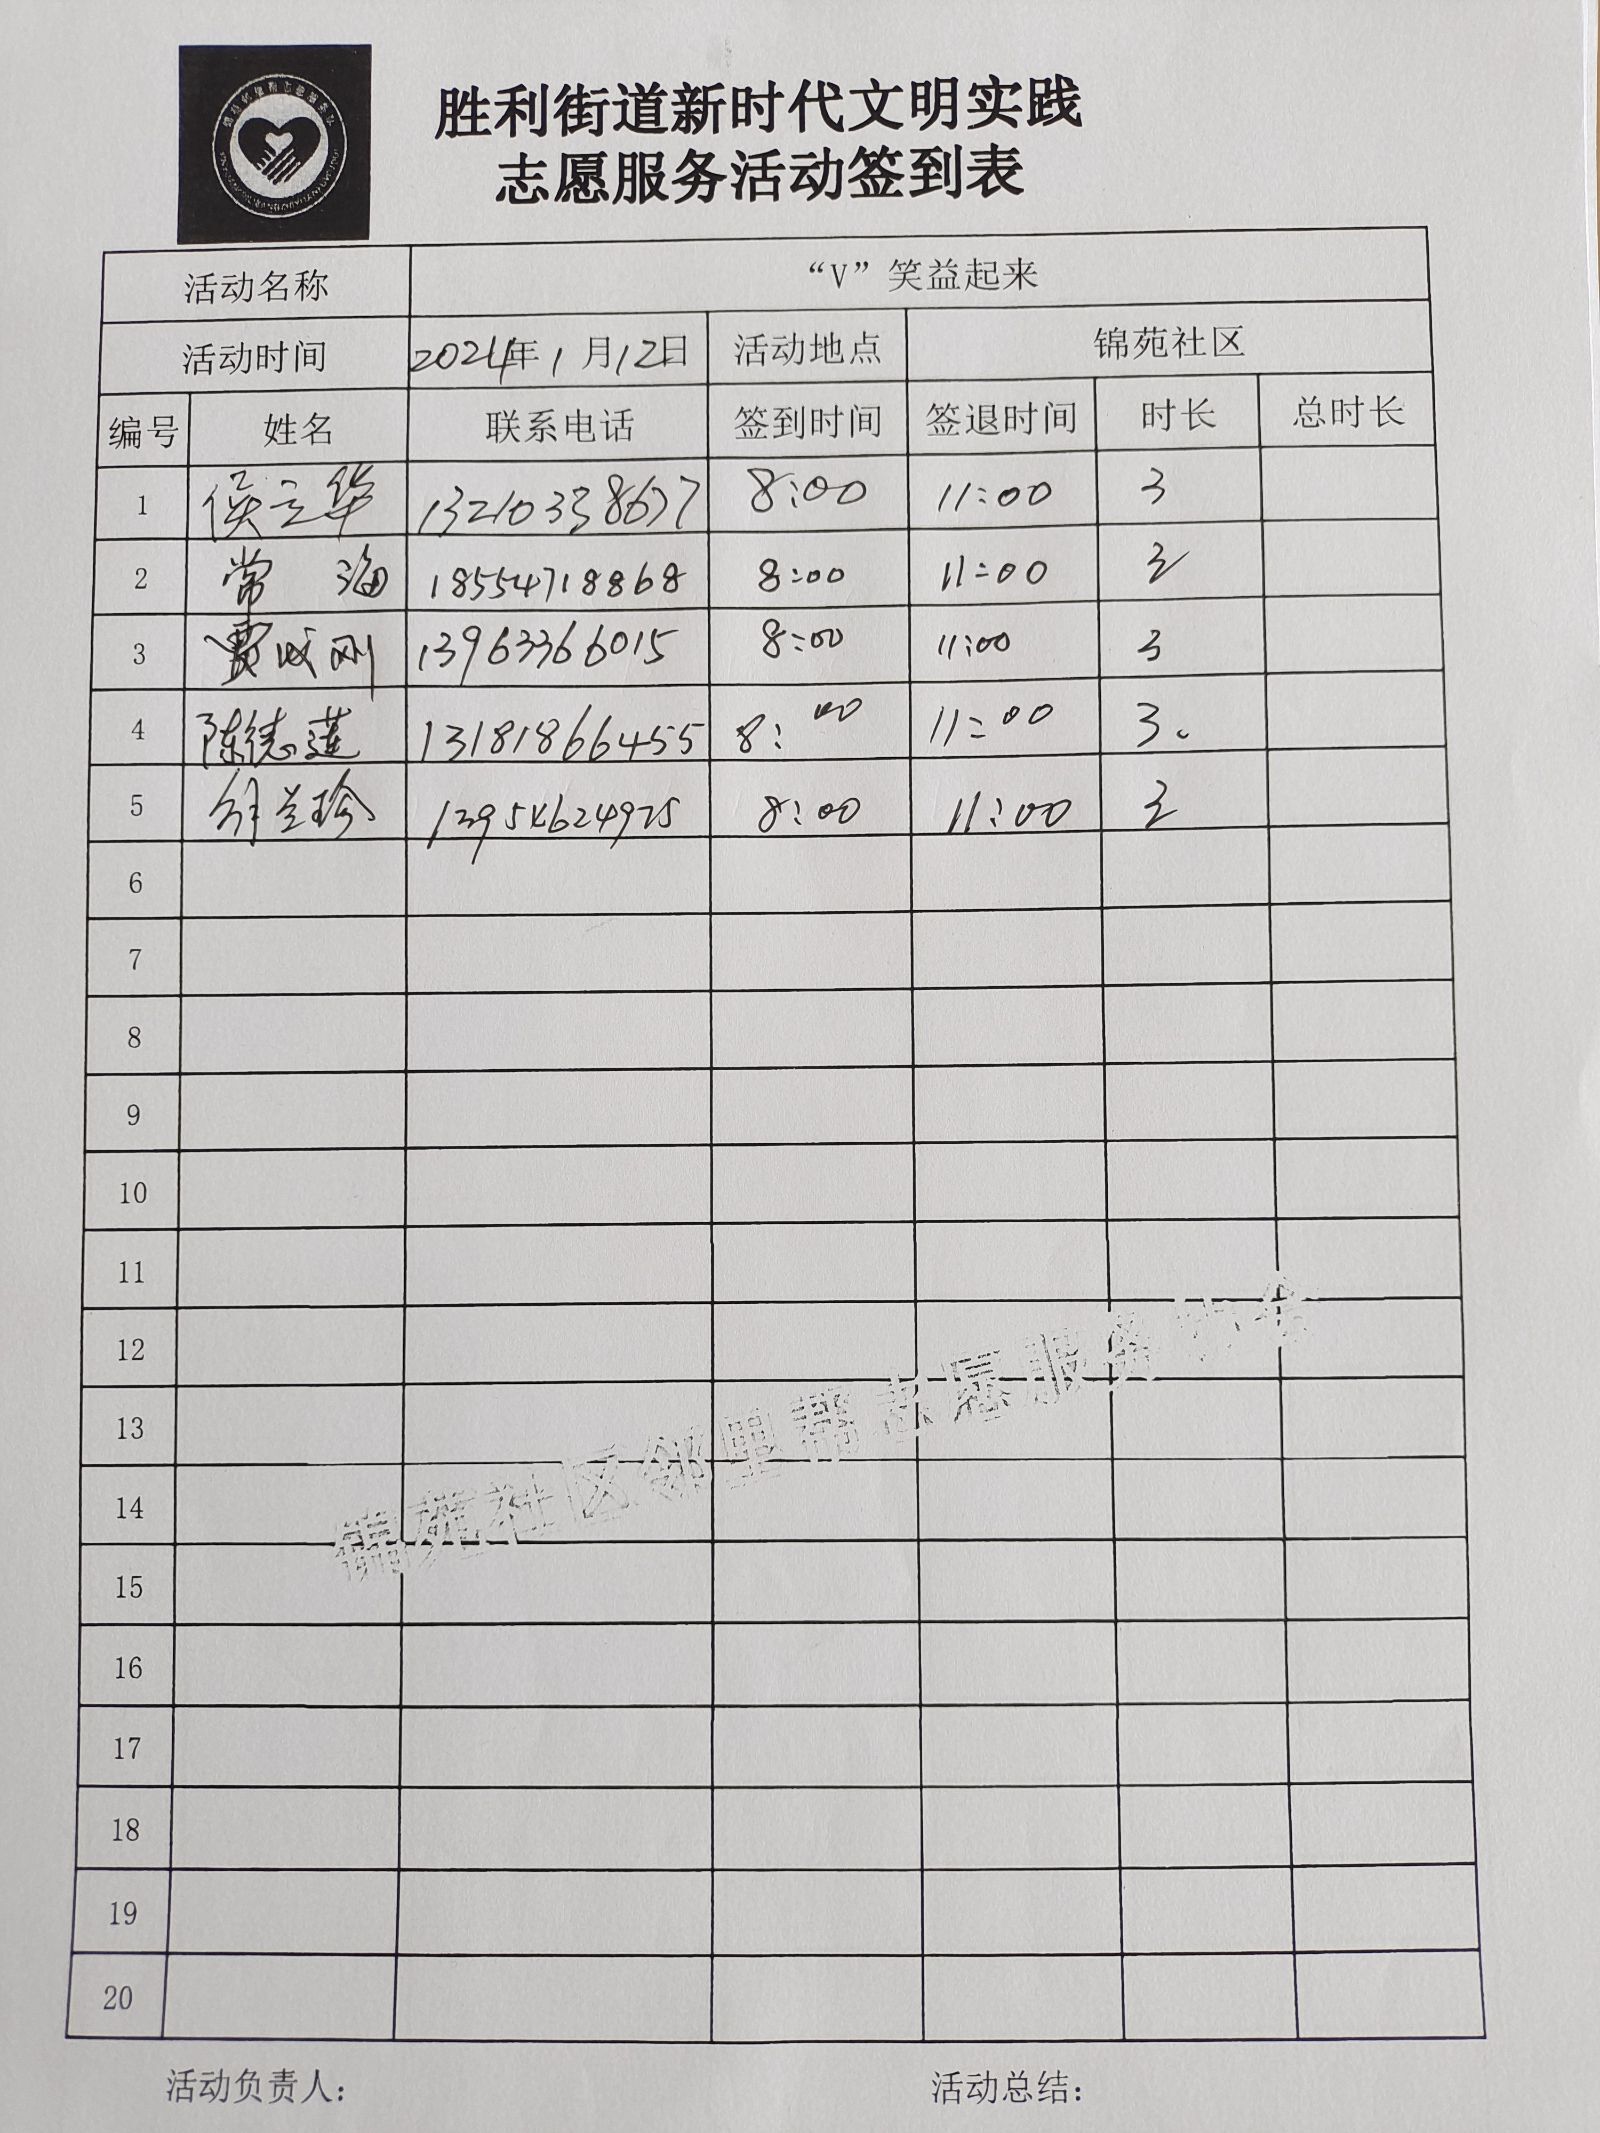 胜利街道新时代文明实践
志愿服务活动签到表
活动名称 “V”笑益起来
活动时间 2024年1月12日 活动地点 锦苑社区
编号 姓名 联系电话 签到时间 签退时间 时长 总时长
1 侯立华 13210338677 8:00 11:00 3
2 常海 18554718868 8:00 11:00 3
3 贾成刚 13963366015 8:00 11:00 3
4 陈德莲 13181866455 8:00 11:00 3.
5 兰珍 13954624975 8:00 11:00 3
6
7
8
9
10
11
12
13
14
15
16
17
18
19
20
锦苑社区邻里帮志愿服务协会
活动负责人： 活动总结：